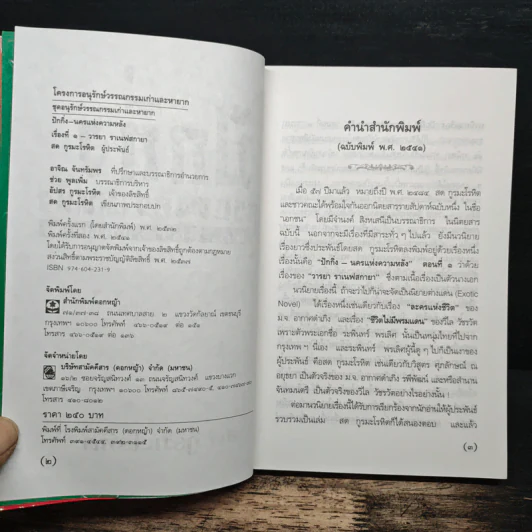 โครงการอนุรักษ์วรรณกรรมเก่าและหายาก
ชุดอนุรักษ์วรรณกรรมเก่าและหายาก
ปักกิ่ง–นครแห่งความหลัง
เรื่องที่ ๑ – วารยา ราเนฟสกายา
สด กูรมะโรหิต ผู้ประพันธ์
อาจิณ จันทรัมพร ที่ปรึกษาและบรรณาธิการอำนวยการ
ช่วย พูลเพิ่ม บรรณาธิการบริหาร
อัปสร กูรมะโรหิต เจ้าของลิขสิทธิ์
สด กูรมะโรหิต เขียนภาพประกอบปก
พิมพ์ครั้งแรก (โดยสำนักพิมพ์) พ.ศ.
พิมพ์ครั้งที่สอง พ.ศ. ๒๕๔๑
โดยได้รับการอนุญาตจัดพิมพ์จากเจ้าของลิขสิทธิ์ถูกต้องตามกฎหมาย
สงวนลิขสิทธิ์ตามพระราชบัญญัติลิขสิทธิ์ พ.ศ. ๒๕๓๗
ISBN 974-604-231-9
จัดพิมพ์โดย
สำนักพิมพ์ดอกหญ้า
ถนนเทศบาลสาย ๒ แขวงวัดกัลยาณ์ เขตธนบุรี
กรุงเทพฯ ๑๐๖๐๐ โทรศัพท์
โทรสาร
จัดจำหน่ายโดย
บริษัทสามัคคีสาร (ดอกหญ้า) จำกัด (มหาชน)
ซอยจรัญสนิทวงศ์ ถนนจรัญสนิทวงศ์
เขตภาษีเจริญ กรุงเทพฯ โทรศัพท์
โทรสาร
ราคา ๒๕๐ บาท
พิมพ์ที่ โรงพิมพ์สามัคคีสาร (ดอกหญ้า) จำกัด (มหาชน)
โทรศัพท์
(๒)
คำนำสำนักพิมพ์
(ฉบับพิมพ์ พ.ศ. ๒๕๔๑)
เมื่อ ๕๗ ปีมาแล้ว หมายถึงปี พ.ศ. ๒๔๘๔ สด กูรมะโรหิต
และชาวคณะได้พร้อมใจกันออกนิตยสารรายสัปดาห์ฉบับหนึ่ง ในชื่อ
"เอกชน" โดยมีจำนงค์ สิงหเสนีเป็นบรรณาธิการ ในนิตยสาร
ฉบับนี้ นอกจากจะมีเรื่องที่มีสาระทั่ว ๆ ไปแล้ว ยังมีนวนิยาย
เรื่องยาวซึ่งประพันธ์โดยสด กูรมะโรหิตลงพิมพ์อยู่ด้วยเรื่องหนึ่ง
เรื่องนั้นคือ "ปักกิ่ง – นครแห่งความหลัง" ตอนที่ ๑ ว่าด้วย
เรื่องของ "วารยา ราเนฟสกายา" ซึ่งตามเนื้อเรื่องเป็นตัวนางเอก
นวนิยายเรื่องนี้ ถ้าจะว่าไปก็น่าจะจัดเป็นนิยายต่างแดน (Exotic
Novel) ได้เรื่องหนึ่งเช่นเดียวกับเรื่อง "ละครแห่งชีวิต" ของ
ม.จ. อากาศดำเกิง และเรื่อง "ชีวิตไม่มีพรมแดน" ของวิไล วัชรวัต
เพราะตัวพระเอกชื่อ ระพินทร์ พรเลิศ นั้นเป็นหนุ่มไทยที่ไปจาก
กรุงเทพ ฯ นี่เอง และระพินทร์ พรเลิศผู้นี้ดู ๆ ไปก็เป็นเงาของ
ผู้ประพันธ์ คือสด กูรมะโรหิต เช่นเดียวกับวิสูตร ศุภลักษณ์ ณ
อยุธยา เป็นตัวจริงของ ม.จ. อากาศดำเกิง รพีพัฒน์ และหรือสำนาน
จันทมนตรี เป็นตัวจริงของวิไล วัชรวัตอย่างไรอย่างนั้น !
ต่อมานวนิยายเรื่องนี้ได้รับการเรียกร้องจากนักอ่านให้ผู้ประพันธ์
รวบรวมเป็นเล่ม สด กูรมะโรหิตก็ได้สนองตอบ และแล้ว
(๓)